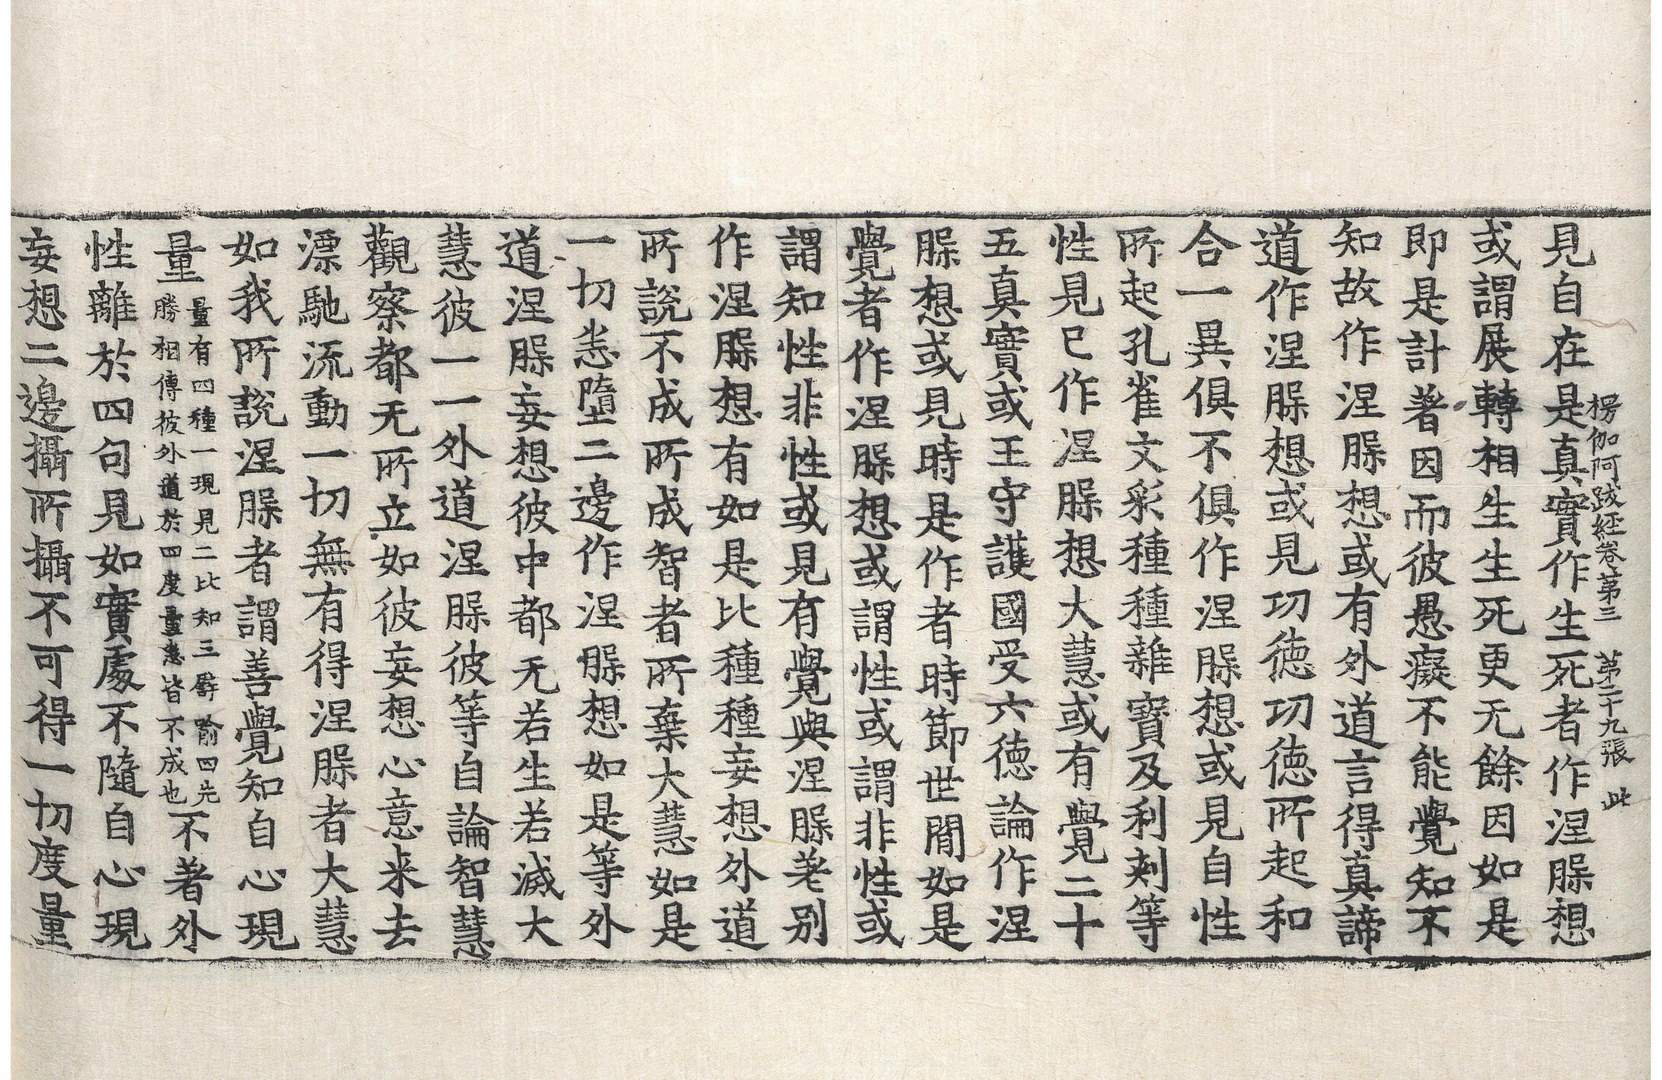 楞伽阿跋經卷第三 第二十九張 此
見自在是真實作生死者作涅槃想
或謂展轉相生生死更无餘因如是
即是計著因而彼愚癡不能覺知不
知故作涅槃想或有外道言得真諦
道作涅槃想或見功德功德所起和
合一異俱不俱作涅槃想或見自性
所起孔雀文彩種種雜寶及利刺等
性見已作涅槃想大慧或有覺二十
五真實或王守護國受六德論作涅
槃想或見時是作者時節世間如是
覺者作涅槃想或謂性或謂非性或
謂知性非性或見有覺與涅槃差別
作涅槃想有如是比種種妄想外道
所說不成所成智者所棄大慧如是
一切悉墮二邊作涅槃想如是等外
道涅槃妄想彼中都无若生若滅大
慧彼一一外道涅槃彼等自論智慧
觀察都无所立如彼妄想心意来去
漂馳流動一切無有得涅槃者大慧
如我所說涅槃者謂善覺知自心現
量
量有四種一現見二比知三譬喻四先
勝相傳彼外道於四度量悉皆不成也
不著外
性離於四句見如實處不隨自心現
妄想二邊攝所攝不可得一切度量